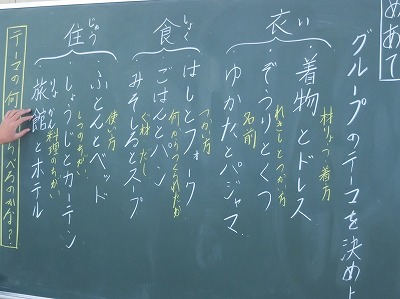 めあて
グループのテーマを決めよ
衣 い
着物とドレス
材りょう 着方
ぞうりとくつ
れきしとつかい方
ゆかたとパジャマ
名前
食 しょく
はしとフォーク
つかい方
ごはんとパン
何からつくられたか
みそしるとスープ
ぐ材 だし
住 じゅう
ふとんとベッド
使い方
しょうじとカーテン
しつのちがい
旅館とホテル
りょかん
料理のちがい
テーマの何
べるのかな？